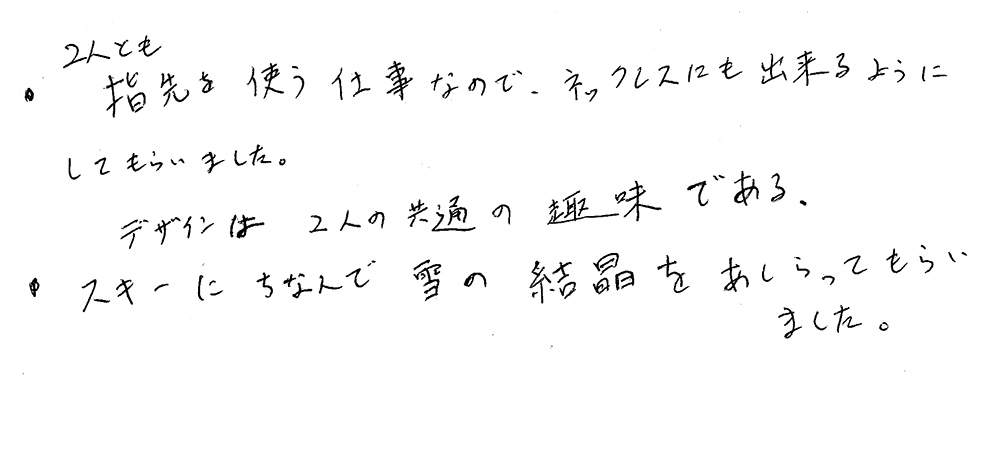 2人とも
・ 指先を使う仕事なので、ネックレスにも出来るように
してもらいました。
デザインは2人の共通の趣味である、
・ スキーにちなんで雪の結晶をあしらってもらい
ました。